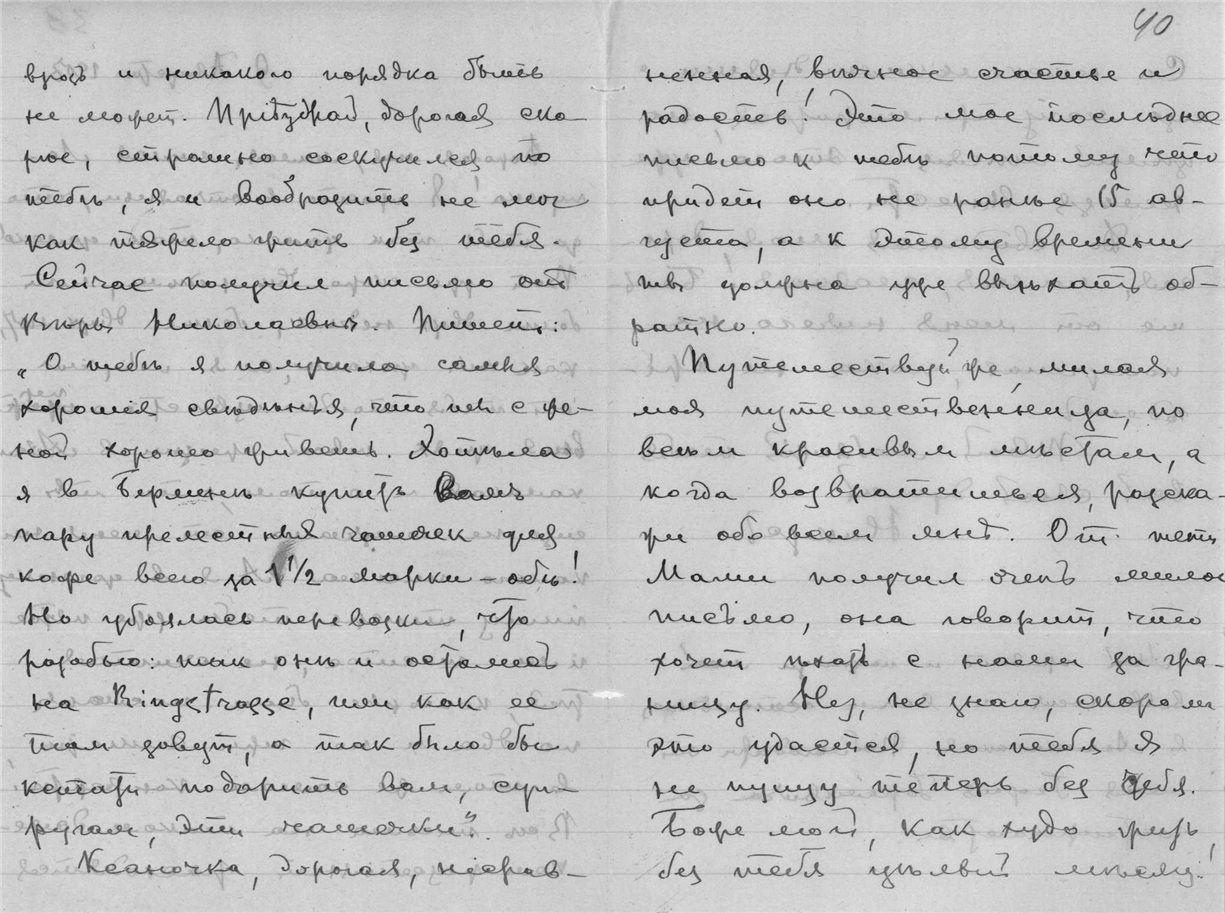 врозь и никакого порядка быть
не может. Пріѣзжай, дорогая ско-
рѣе, страшно соскучился по
тебѣ, я и вообразить не мог
как тяжело жить без тебя.
Сейчас получил письмо от
Вѣры Николаевны. Пишет:
„О тебѣ я получила самыя
хорошія свѣдѣнья, что ты с же-
ной хорошо живешь. Хотѣла
я в Берлинѣ купить вамъ
пару прелестных чашечек для
кофе всего за 1 1/2 марки – обѣ!
Но убоялась перевозки, что
разобью: так онѣ и остались
на Ringstrasse, или как ее
там зовут, а так было бы
кстати подарить вам, суп-
ругам, эти чашечки“.
Ксаночка, дорогая, несрав-
40
ненная, вѣчное счастье и
радость! Это мое послѣднее
письмо к тебѣ потому что
придет оно не ранѣе 15 ав-
густа, а к этому времени
ты должна уже выѣхать об-
ратно.
Путешествуй же, милая
моя путешественница, по
всѣм красивым мѣстам, а
когда возвратишься, разска-
жи обо всем мнѣ. От тети
Маши получил очень милое
письмо, она говорит, что
хочет ѣхать с нами за гра-
ницу. Не знаю, скоро ли
это удастся, но тебя я
не пущу теперь без себя.
Боже мой, как худо жить
без тебя цѣлый мѣсяц!